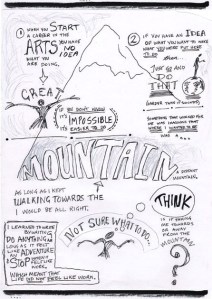 ① WHEN YOU START
A CAREER IN THE
ARTS YOU HAVE
NO
IDEA
WHAT YOU
ARE DOING.
GREAT
IF WE DON'T KNOW
IT'S
IMPOSSIBLE
IT'S EASIER TO DO
② IF YOU HAVE AN IDEA
OF WHAT YOU WANT TO MAKE
WHAT YOU WERE PUT HERE
TO DO...
then...
JUST GO AND
DO
THAT
(HARDER THAN IT SOUNDS)
SOMETHING THAT WORKED FOR
ME WAS IMAGINING THAT
WHERE I WANTED TO BE
WAS A...
MOUNTAIN.
A DISTANT
MOUNTAIN.
AS LONG AS I KEPT
WALKING TOWARDS THE
I WOULD BE ALL RIGHT.
NOT SURE WHAT TO DO...
THINK
IS IT TAKING
ME TOWARDS
OR AWAY
FROM THE
MOUNTAIN
?
I LEARNED TO WRITE
BY WRITING.
DO ANYTHING AS
LONG AS IT FELT
LIKE ADVENTURE
AND
STOP
WHEN IT
FELT LIKE
WORK.
WHICH MEANT THAT
LIFE DID NOT FEEL LIKE WORK.